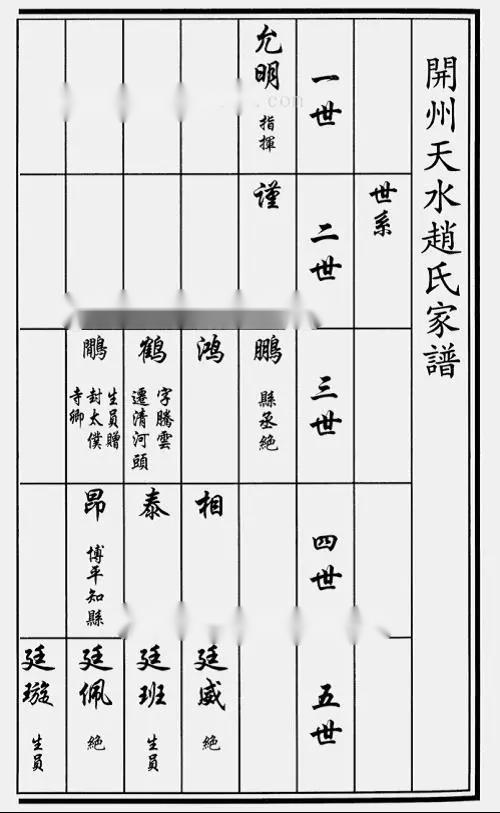 開州天水趙氏家譜
世系
一世
允明
指揮
二世
謹
三世
鵬
縣丞絶
鴻
鶴
字騰雲
遷清河頭
鷳
生員贈
封太僕
寺卿
四世
相
泰
昂
博平知縣
五世
廷威
絶
廷班
生員
廷佩
絶
廷璇
生員